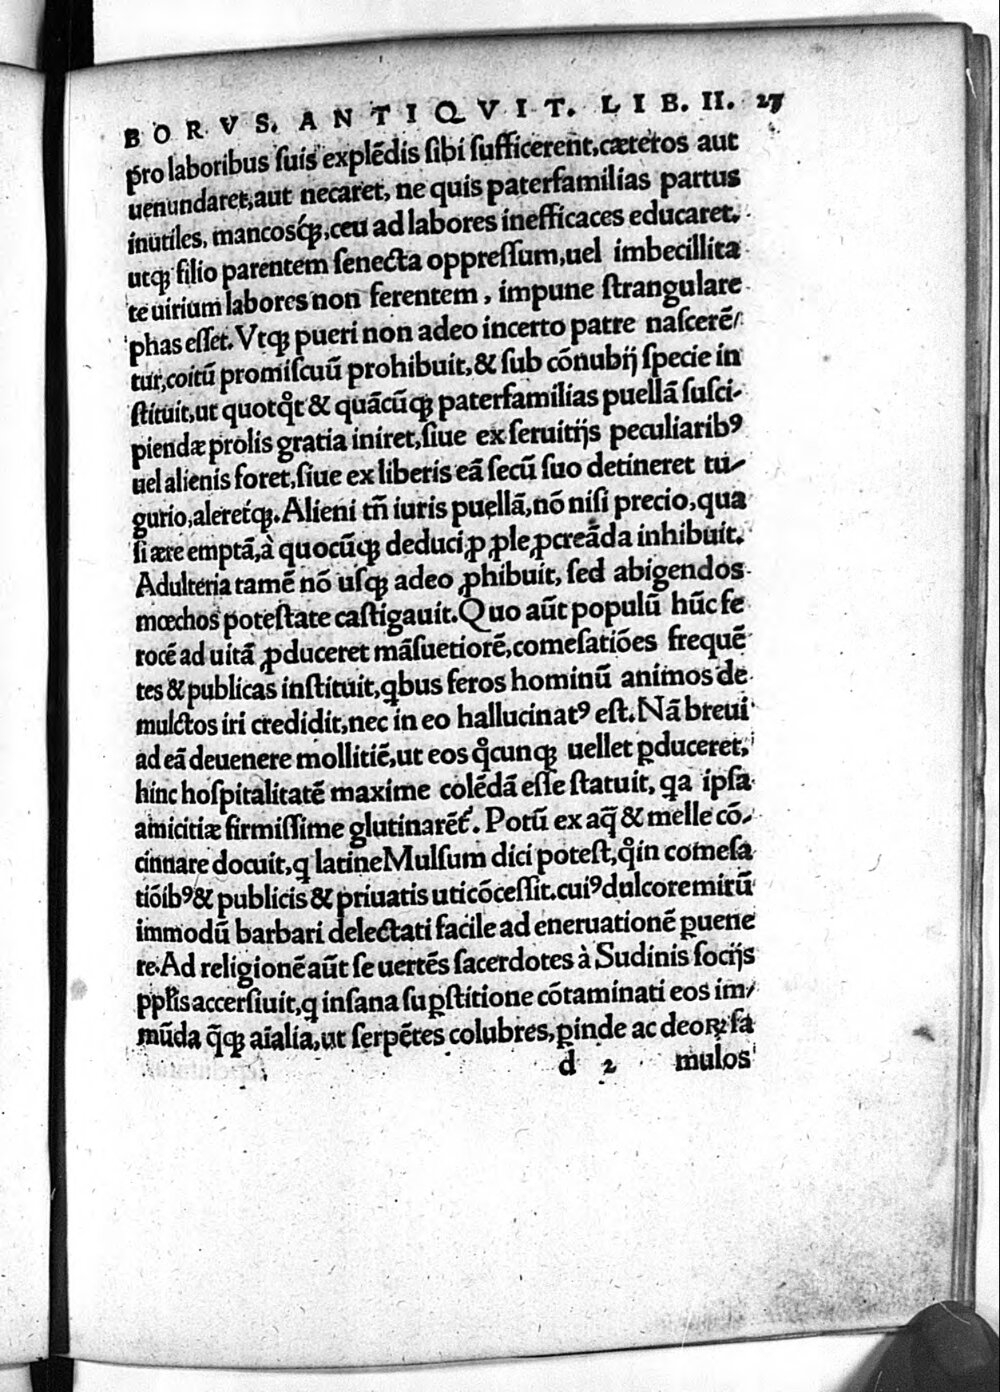 BORVS. ANTIQVIT. LIB. II. 27
pro laboribus ſuis explẽdis ſibi ſufficerent, cæteros aut
uenundaret, aut necaret, ne quis paterfamilias partus
inutiles, mancosq́ꝫ, ceu ad labores inefficaces educaret.
utqꝫ filio parentem ſenecta oppreſſum, uel imbecillita
te uirium labores non ferentem, impune ſtrangulare
phas eſſet. Vtqꝫ pueri non adeo incerto patre naſcerẽ⸗
tur, coitũ promiſcuũ prohibuit, & ſub cõnubij ſpecie in
ſtituit, ut quotqͥt & quãcũqꝫ paterfamilias puellã ſuſci⸗
piendæ prolis gratia iniret, ſiue ex ſeruitijs peculiaribꝰ
uel alienis foret, ſiue ex liberis eã ſecũ ſuo detineret tu⸗
gurio, aleretq́ꝫ. Alieni tñ iuris puellã, nõ niſi precio, qua
ſi ære emptã, à quocũqꝫ deduci, ꝓ ꝓle ꝓcreãda inhibuit.
Adulteria tamẽ nõ uſqꝫ adeo ꝓhibuit, ſed abigendos
mœchos poteſtate caſtigauit. Quo aũt populũ hũc fe
rocẽ ad uitã ꝓduceret mãſuetiorẽ, comeſatiões frequẽ
tes & publicas inſtituit, qbus feros hominũ animos de
mulctos iri credidit, nec in eo hallucinatꝰ eſt. Nã breui
ad eã deuenere mollitiẽ, ut eos qͦcunqꝫ uellet ꝑduceret,
hinc hoſpitalitatẽ maxime colẽdã eſſe ſtatuit, qa ipſa
amicitiæ firmiſſime glutinarẽt᷑. Potũ ex aq̃ & melle cõ⸗
cinnare docuit, q latine Mulſum dici poteſt, qͦ in comeſa
tiõibꝰ & publicis & priuatis uti cõceſſit. cuiꝰ dulcore mirũ
immodũ barbari delectati facile ad eneruationẽ ꝑuene
re. Ad religionẽ aũt ſe uertẽs ſacerdotes à Sudinis ſocijs
pplis accerſiuit, q inſana ſuꝑſtitione cõtaminati eos im⸗
mũda q̃qꝫ aĩalia, ut ſerpẽtes colubres, ꝑinde ac deoꝝ fa
d 2 mulos